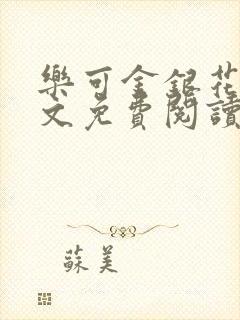 樂可金銀花
文免費閱讀
蘇美